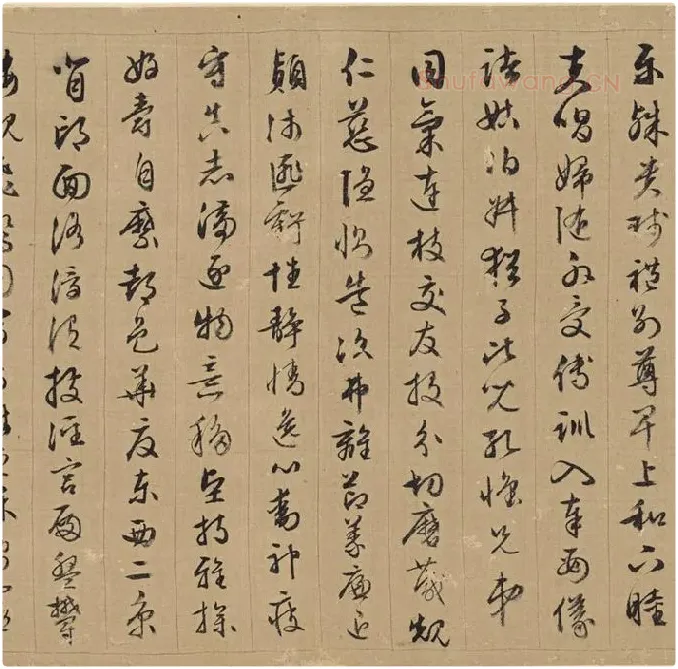 樂殊貴賤禮別尊卑上和下睦
夫唱婦隨外受傅訓入奉母儀
諸姑伯叔猶子比兒孔懷兄弟
同氣連枝交友投分切磨箴規
仁慈隱惻造次弗離節義廉退
顛沛匪虧性靜情逸心動神疲
守真志滿逐物意移堅持雅操
好爵自縻都邑華夏東西二京
背邙面洛浮渭據涇宮殿盤鬱
shufawang.CN